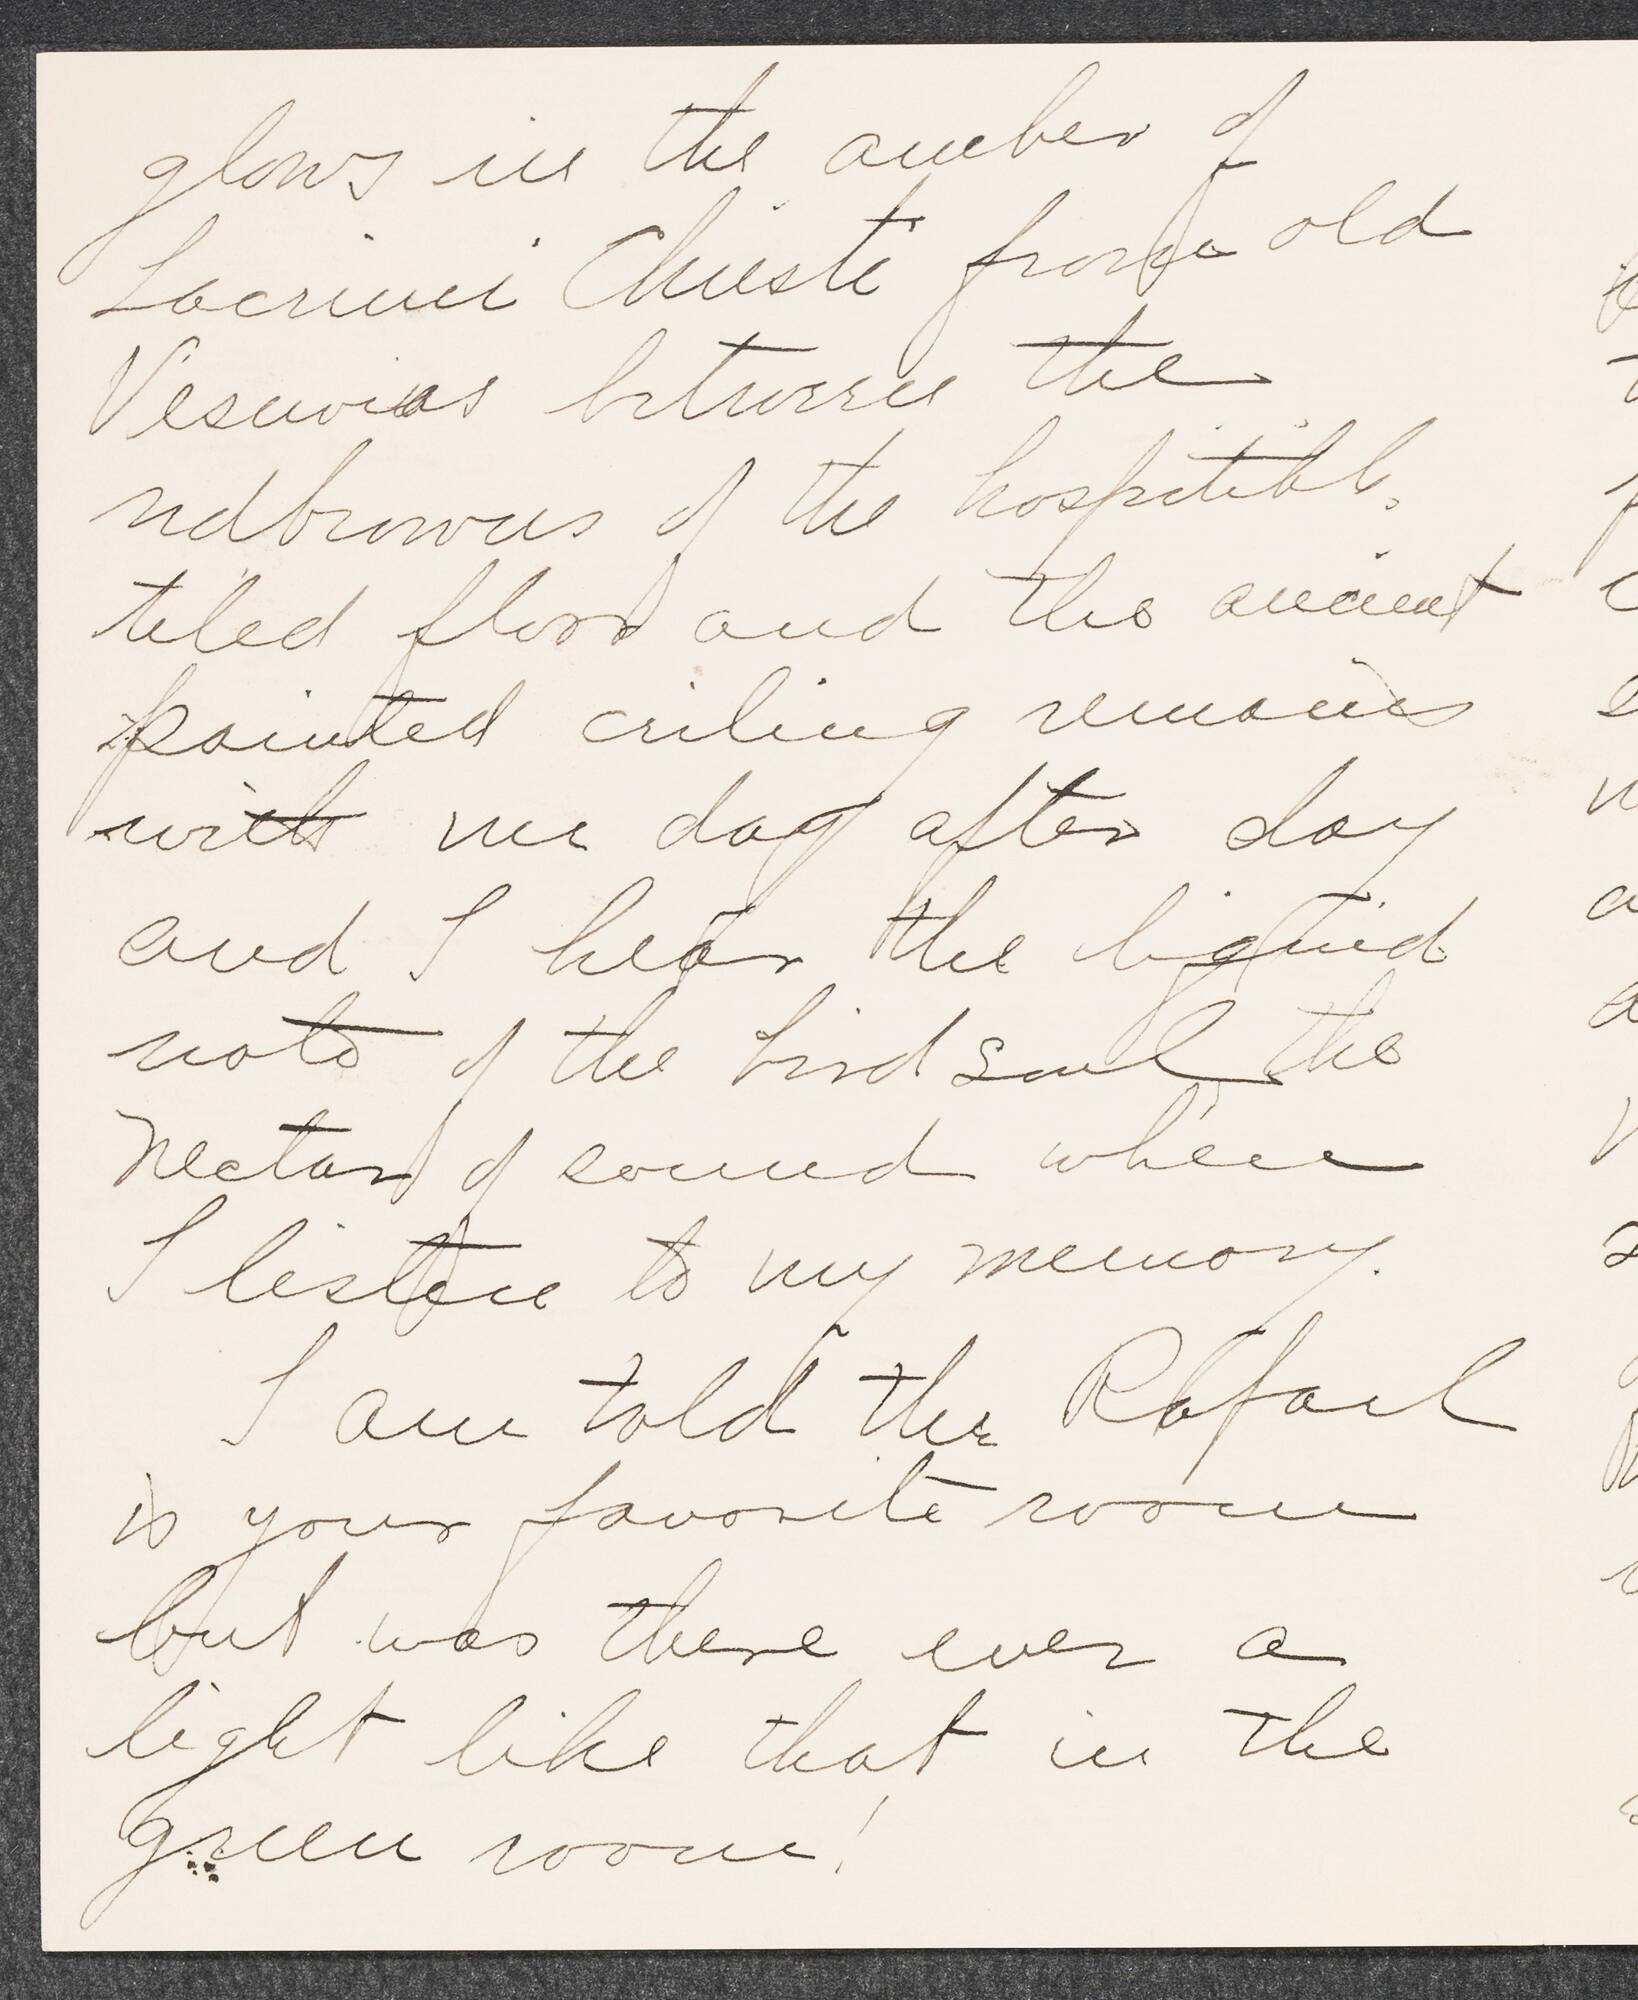 glows in the amber of
Lacrimi Christi from old
Vesuvius between the
redbrowns of the hospitable,
tiled floor and the ancient
painted ceiling remains
with me day after day
and I hear the liquid
note of the bird soul the
Nectar of sound when
I listen to my memory.
I am told the Rafael
is your favorite room
but was there ever a
light like that in the
green room!